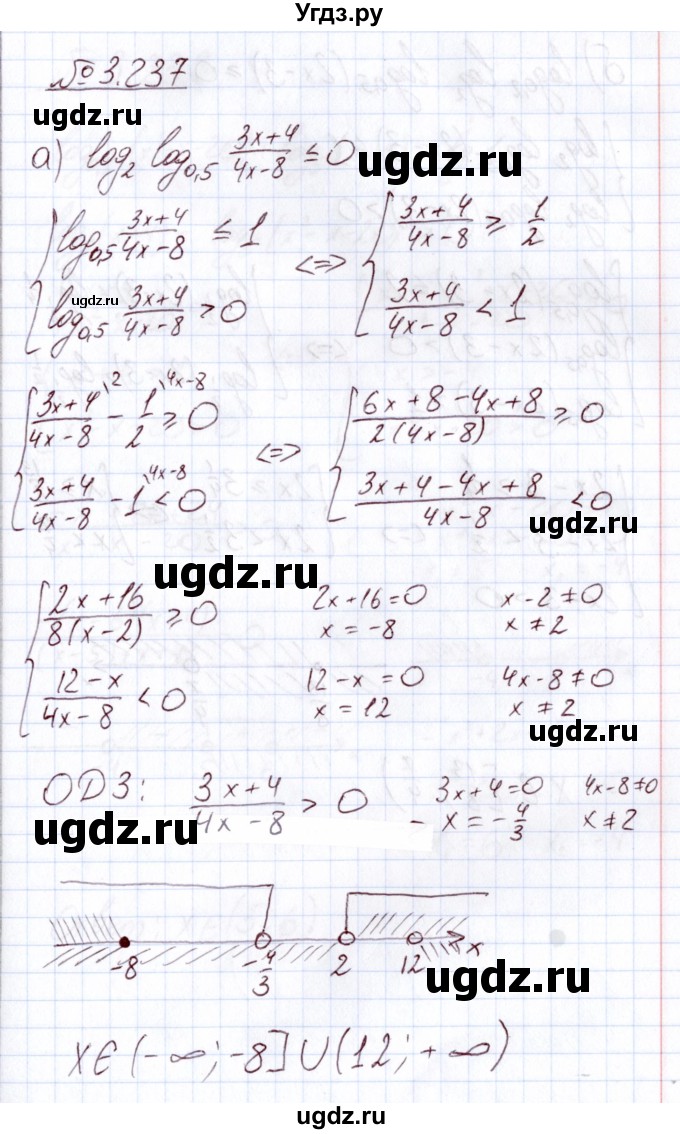 Угдз.ру
№ 3.237
ugdz.ru
а) log₂ log₀,₅ (3x+4)/(4x-8) ≤ 0
ugdz.ru
{ log₀,₅ (3x+4)/(4x-8) ≤ 1
{ log₀,₅ (3x+4)/(4x-8) > 0
ugdz.ru
<=>
{ (3x+4)/(4x-8) ≥ 1/2
{ (3x+4)/(4x-8) < 1
{ (3x+4)/(4x-8) \2 - 1/2 \4x-8 ≥ 0
{ (3x+4)/(4x-8) - 1 \4x-8 < 0
<=>
{ (6x+8-4x+8)/(2(4x-8)) ≥ 0
{ (3x+4-4x+8)/(4x-8) < 0
ugdz.ru
ugdz.ru
{ (2x+16)/(8(x-2)) ≥ 0
{ (12-x)/(4x-8) < 0
2x+16=0
x = -8
x-2≠0
x ≠ 2
12-x = 0
x = 12
4x-8≠0
x ≠ 2
ugdz.ru
ОДЗ: (3x+4)/(4x-8) > 0
3x+4=0
x = -4/3
4x-8≠0
x ≠ 2
ugdz.ru
-8 -4/3 2 12 x
ugdz.ru
x∈(-∞; -8]∪(12; +∞)
ugdz.ru
ugdz.ru